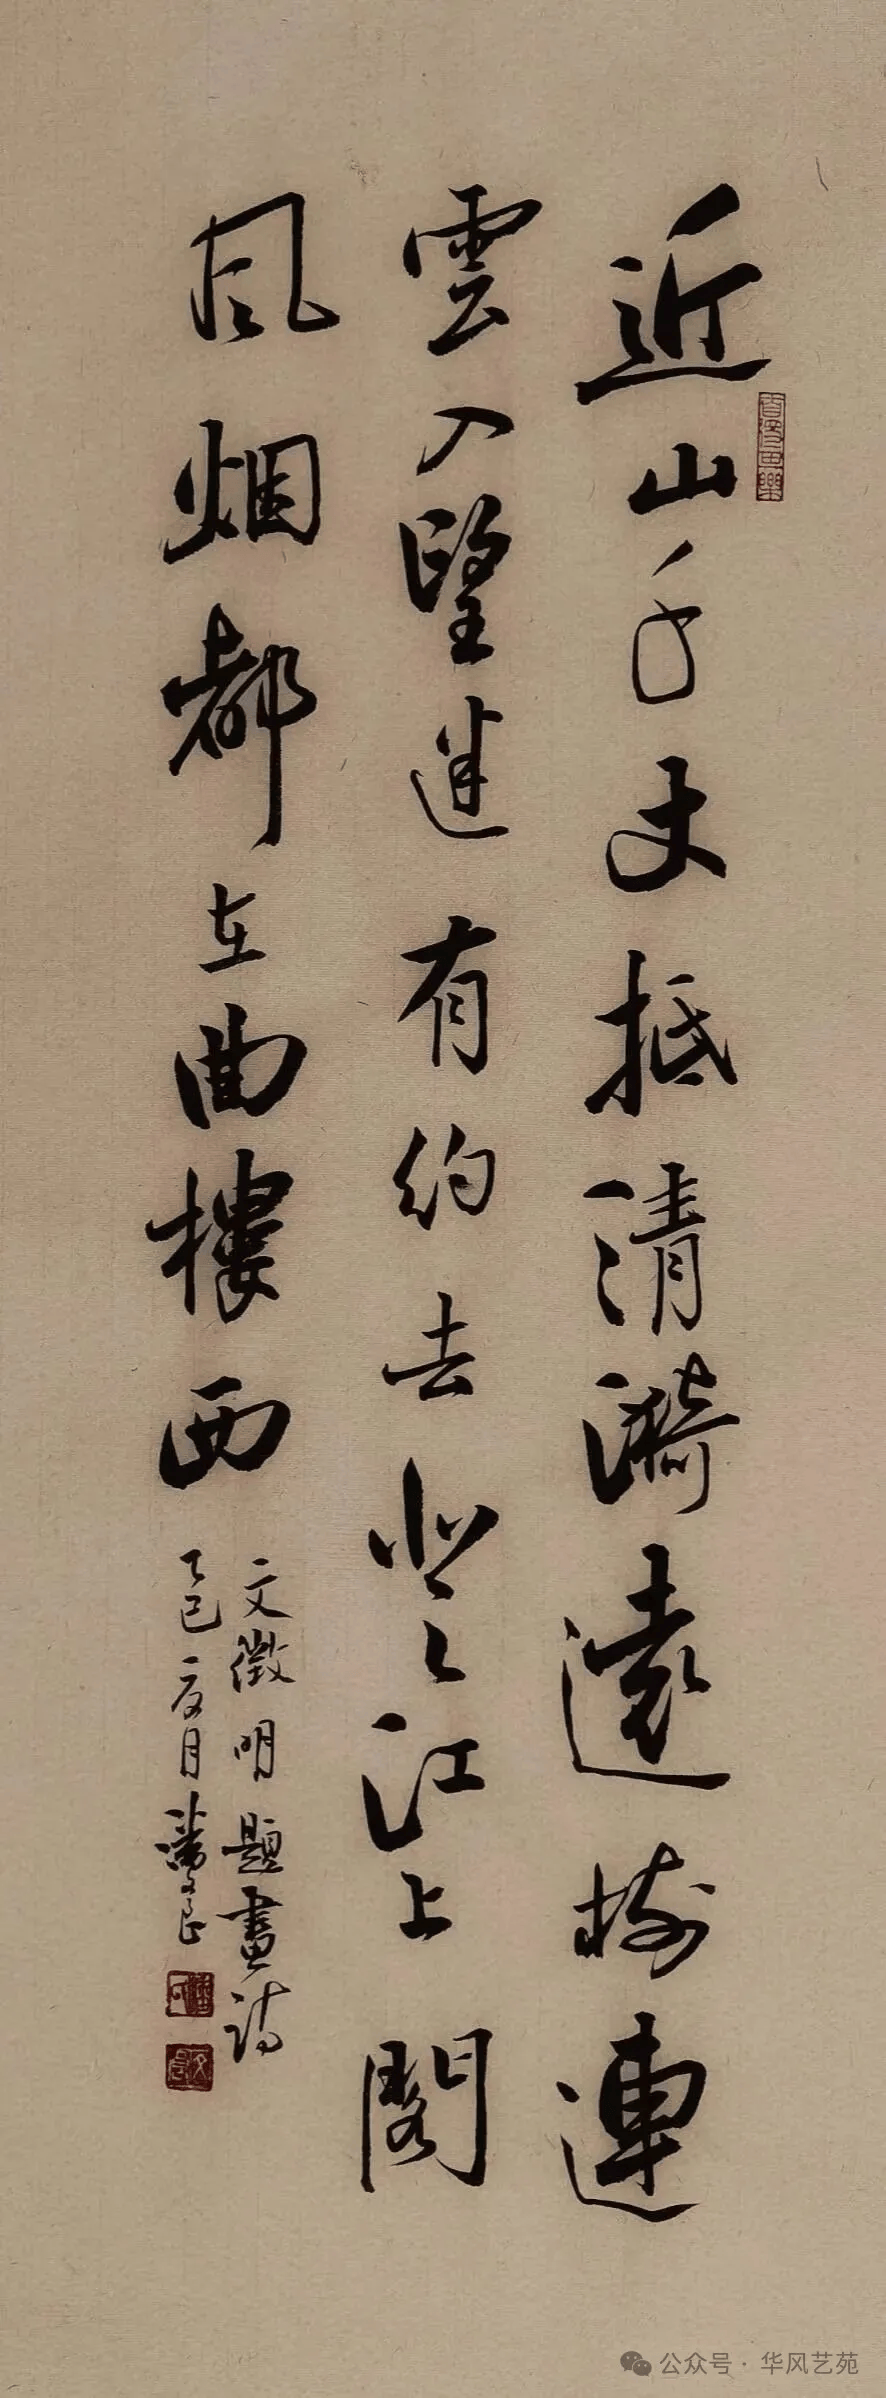 近山千丈抵清漪遠樹連
雲入望迷有約去登江上閣
風烟都在曲樓西
文徵明題畫詩
乙巳夏月潘文良
公众号·华风艺苑